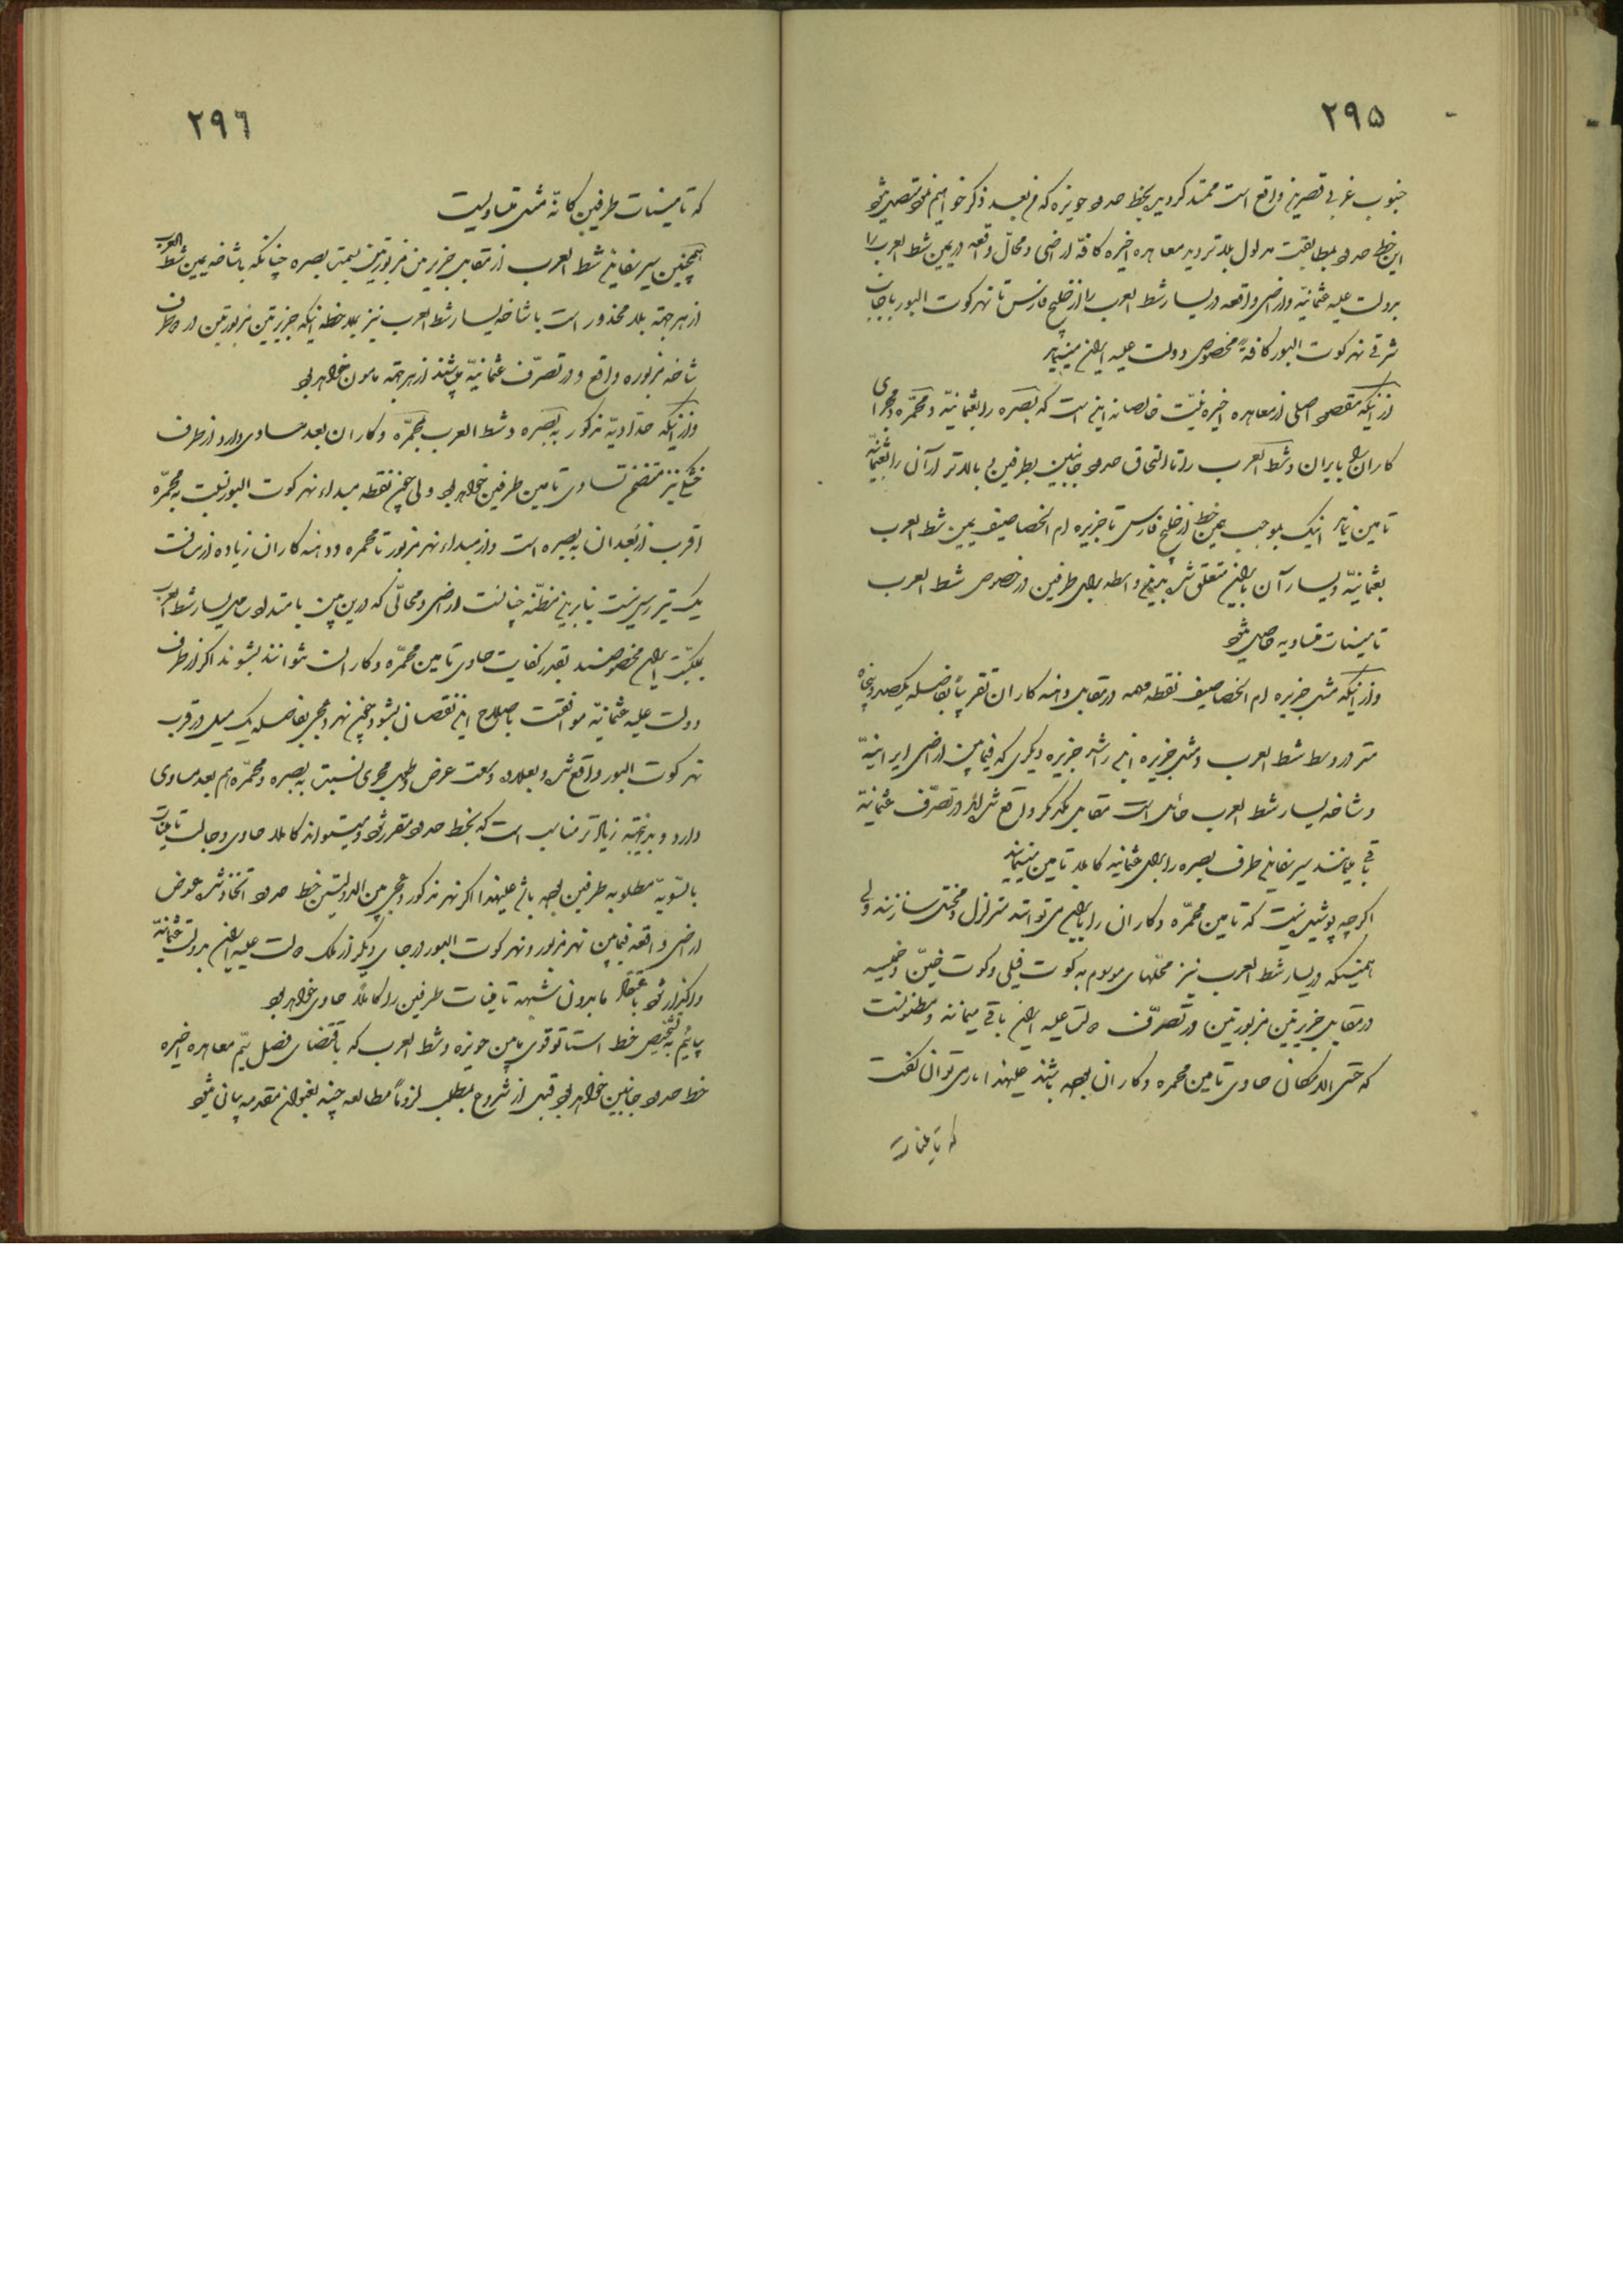 ۲۹۵
جنوب غربی قصر مزبور واقع است ممتد گردیده بخط حدود حویزه که من بعد ذکر خواهیم نمود متصل میشود
این خط حدود بمطابقت مدلول بلا تردید معاهده اخیره کافّه اراضی و محالّ واقعه در یمین شط العرب را
بدولت علیه عثمانیّه و اراضی واقعه در یسار شط العرب را از خلیج فارس تا نهر کوت البور با جانب
شرقی نهر کوت البور کافةً مخصوص دولت علیه ایران مینماید
از اینکه مقصود اصلی از معاهده اخیره نیّت خالصانه این است که بصره را بعثمانیّه و محمّره و مجرای
کاران را بایران و شط العرب را تا التحاق حدود جانبین بطرفین و بالاتر از آن را بعثمانیّه
تامین نماید اینک بموجب همین خط از خلیج فارس تا جزیره ام الخصاصیف یمین شط العرب
بعثمانیّه و یسار آن بایران متعلق شده بدینواسطه برای طرفین در خصوص شط العرب
تامینات متساویه حاصل میشود
و از اینکه مثل جزیره ام الخصاصیف نقطه مهمه در مقابل دهنه کاران تقریباً بفاصله یکصد و پنجاه
متر در وسط شط العرب و مثل جزیره ام الرشاش جزیره دیگری که فیما بین اراضی ایرانیّه
و شاخه یسار شط العرب حائل است مقابل یکدیگر واقع شده در تصرّف عثمانیّه
باقی میمانند سیر سفاین طرف بصره را برای عثمانیه کاملا تامین مینمایند
اگر چه پوشیده نیست که تامین محمّره و کاران را بایران می توانند متزلزل و مختل سازند ولی
همینکه در یسار شط العرب نیز محلّهای موسوم به کوت فیلی و کوت خیّن و خمیسه
در مقابل جزیرتین مزبورتین در تصرّف دولت علیه ایران باقی میماند و مظنونست
که حتی الامکان حاوی تامین محمره و کاران بوده باشند علیهذا میتوان گفت
که تامینات
۲۹٦
که تامینات طرفین کانّه مثل متساویست
همچنین سیر سفاین شط العرب از مقابل جزیرتین مزبورتین بسمت بصره چنانکه با شاخه یمین شط العرب
از هر جهة بلا محذور است با شاخه یسار شط العرب نیز بملاحظه اینکه جزیرتین مزبورتین در دو طرف
شاخه مزبوره واقع و در تصرّف عثمانیّه میباشند از هر جهة مامون خواهد بود
و از اینکه حدّادیّه مذکور به بصره و شط العرب بمحمّره و کاران بعد مساوی دارد از طرف
خشکی نیز متضمّن تساوی تامین طرفین خواهد بود ولی چون نقطه مبداء نهر کوت البور نسبت به محمّره
اقرب از بُعد آن به بصره است و از مبداء نهر مزبور تا محمره و دهنه کاران زیاده از مسافت
یک تیر رس نیست بنابرین مظنّه چنانست اراضی و محالّی که در این بین بامتداد ساحل یسار شط العرب
بملکیّت ایران مخصوصند بقدر کفایت حاوی تامین محمّره و کاران نتوانند بشوند اگر از طرف
دولت علیه عثمانیّه موافقت باصلاح این نقصان بشود چون نهر دعیجی بفاصله یک میل در قرب
نهر کوت البور واقع شده و بعلاوه وسعت عرض و طول مجری نسبت به بصره و محمّره هم بعد مساوی
دارد و بدینجهة زیادتر مناسب است که بخط حدود مقرر شود و میتواند کاملا حاوی و جالب تامینات
بالسّویّه مطلوبه طرفین بوده باشد علیهذا اگر نهر مذکور دعیجی بین الدولتین خط حدود اتخاذ شده عوض
اراضی واقعه فیما بین نهر مزبور و نهر کوت البور در جای دیگر از ملک دولت علیه ایران بدولت علیه عثمانیّه
واگذار شود باعتقاد ما بدون شبهه تامینات طرفین را کاملاً حاوی خواهد بود
بیائیم به تشخیص خط استاتوقوی ما بین حویزه و شط العرب که باقتضای فصل سیّم معاهده اخیره
خط حدود جانبین خواهد بود قبل از شروع بمطلب لزوماً مطالعه چند بعنوان مقدمه بیان میشود